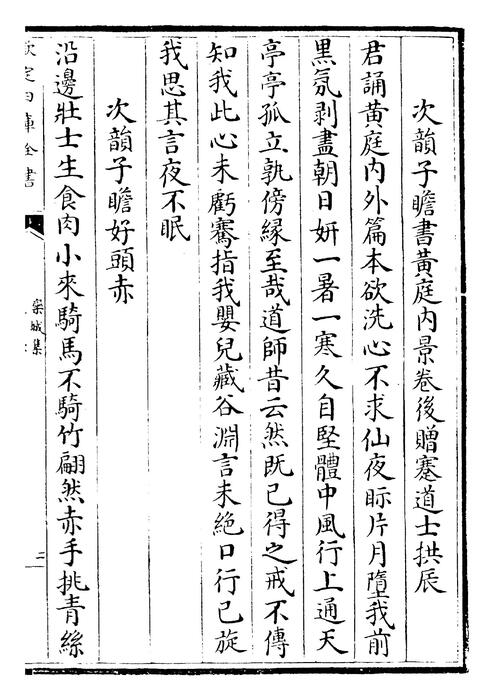 次韻子瞻書黃庭內景卷後贈蹇道士拱辰
君誦黃庭內外篇本欲洗心不求仙夜眎片月墮我前
黑氛剥盡朝日妍一暑一寒久自堅體中風行上通天
亭亭孤立孰傍縁至哉道師昔云然既已得之戒不傳
知我此心未虧騫指我嬰兒藏谷淵言未絶口行已旋
我思其言夜不眠
次韻子瞻好頭赤
沿邊壯士生食肉小來騎馬不騎竹翩然赤手挑青絲
欽定四庫全書
欒城集
二